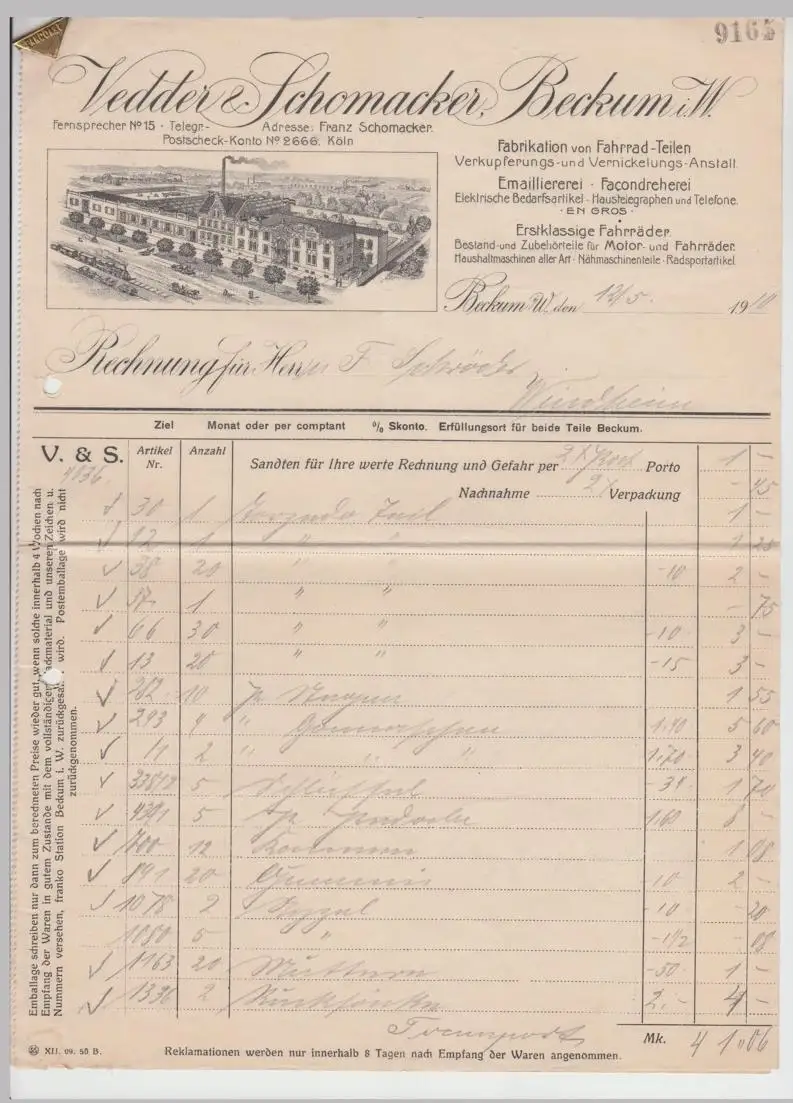 9165
Vedder & Schomacker, Beckum i. W.
Fernsprecher No 15 · Telegr.- Adresse: Franz Schomacker.
Postscheck-Konto No 2666, Köln
Fabrikation von Fahrrad-Teilen
Verkupferungs- und Vernickelungs-Anstalt.
Emailliererei · Façondreherei
Elektrische Bedarfsartikel · Haustelegraphen und Telefone.
· EN GROS ·
Erstklassige Fahrräder.
Bestand- und Zubehörteile für Motor- und Fahrräder.
Haushaltmaschinen aller Art · Nähmaschinenteile · Radsportartikel.
Beckum i. W. den 12/5. 1910
Rechnung für Herrn F Schröder
Ziel Monat oder per comptant % Skonto. Erfüllungsort für beide Teile Beckum.
V. & S. Artikel Nr. Anzahl Sandten für Ihre werte Rechnung und Gefahr per 2 x Post Porto 1 –
Nachnahme 2x Verpackung – 45
30 1 Torpedo Teil 1 –
12 1 " " 1 25
38 20 " " -10 2 –
37 1 " " – 75
66 30 " " -10 3 –
13 20 " " -15 3 –
262 10 1 55
293 4 " 1.40 5 60
2 " " " 1.70 3 40
5 Schlüssel -34 1 70
5 1.60
700 12 1 08
891 20 Gummi -10 2 –
1078 2 -10 – 20
1080 5 " -1 1/2 – 08
1163 20 Muttern -50 1 –
1336 2 2.- 4 –
Transport
Mk. 41.06
Emballage schreiben nur dann zum berechneten Preise wieder gut, wenn solche innerhalb 4 Wochen nach
Empfang der Waren in gutem Zustande mit dem vollständigen Packmaterial und unseren Zeichen u.
Nummern versehen, franko Station Beckum i. W. zurückgesandt wird. Postemballage wird nicht
zurückgenommen.
XII. 09. 50 B.
Reklamationen werden nur innerhalb 8 Tagen nach Empfang der Waren angenommen.